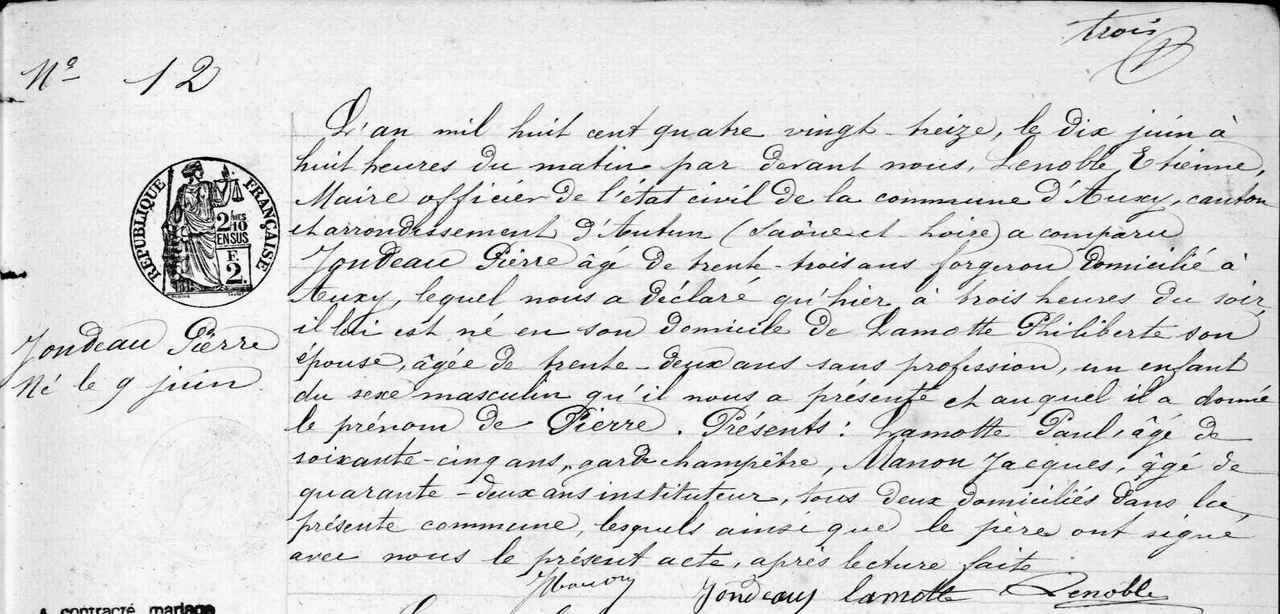 trois
N° 12
L'an mil huit cent quatre vingt-treize, le dix juin à
huit heures du matin par devant nous, Lenoble Etienne,
Maire officier de l'état civil de la commune d'Auxy, canton
et arrondissement d'Autun (Saône-et-Loire) a comparu
Jondeau Pierre âgé de trente-trois ans forgeron domicilié à
Auxy, lequel nous a déclaré qu'hier à trois heures du soir,
il lui est né en son domicile de Lamotte Philiberte son
épouse, âgée de trente-deux ans sans profession, un enfant
du sexe masculin qu'il nous a présenté et auquel il a donné
le prénom de Pierre. Présents: Lamotte Paul, âgé de
soixante-cinq ans, garde champêtre, Manon Jacques, âgé de
quarante-deux ans instituteur, tous deux domiciliés dans la
présente commune, lesquels ainsi que le père ont signé
avec nous le présent acte, après lecture faite
Manon Jondeau Lamotte Lenoble
REPUBLIQUE FRANÇAISE
2/10 EN SUS
F. 2.
Jondeau Pierre
Né le 9 juin.
A contracté mariage